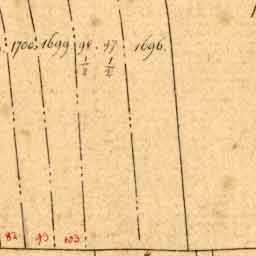 1700. 1699 98. 97 1696.
1/2 1/2
82 93 103